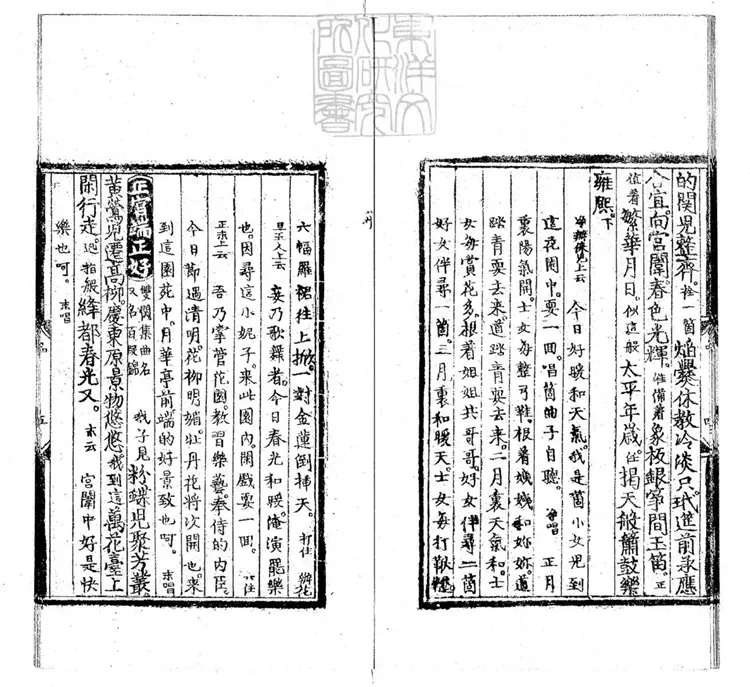 東洋文
化研究
所圖書
的関児整齊。拴一箇焰爨休教冷淡只。玳進前承應
合宜。向宮闈。春色光輝。准備着象板銀箏間玉笛。正
值着繁華月日。似這般太平年歳。任掲天般簫鼓樂
雍熙。下
淨辦俫兒上云 今日好暖和天氣。我是箇小女兒到
這花園中。耍一回。唱箇曲子自聽。 淨唱 正月
裏陽氣開。士女每整弓鞋。根着姨姨和妳妳。道
踏青耍去來。道踏青耍去來。二月裏天氣和。士
女每賞花多。根着姐姐共哥哥。好女伴尋一箇
好女伴尋一箇。三月裏和暖天。士女每打鞦韆
六幅羅裙往上掀。一對金蓮倒揷天。 打住 辦花
旦末人上云 妾乃歌舞者。今日春光和暖。俺演罷樂
也。因尋這小妮子。來此園內。閑戲耍一回。 住
正末上云 吾乃掌管花園。教習樂藝。奉侍的內臣。
今日節遇清明。花柳明媚。牡丹花將次開也。來
到這園苑中。月華亭前。端的好景致也呵。 末唱
正宮端正好 雙調集曲名 又名百段錦 我子見粉蝶児聚芳叢
黄鶯児遷高柳。慶東原景物悠悠。我到這萬花臺上
閑行走。 絳都春光又。 末云 宮闈中好是快
樂也呵。 末唱
五